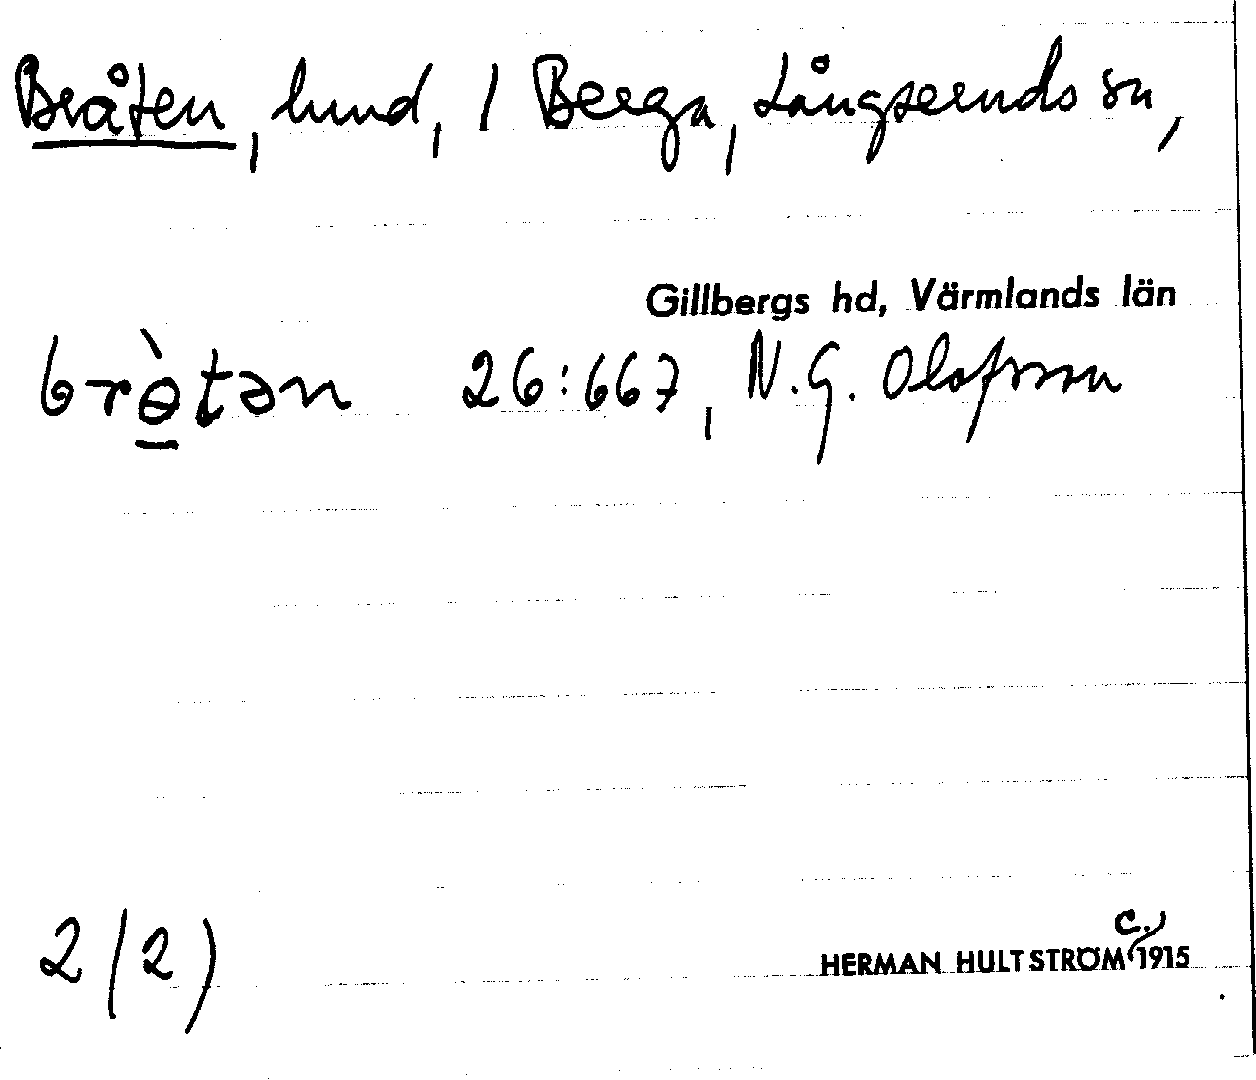 Bråten, lund, 1 Berga, Långseruds sn,
Gillbergs hd, Värmlands län
brɵ̀tən 26:667, N.G. Olofsson
2(2)
HERMAN HULTSTRÖM c. 1915